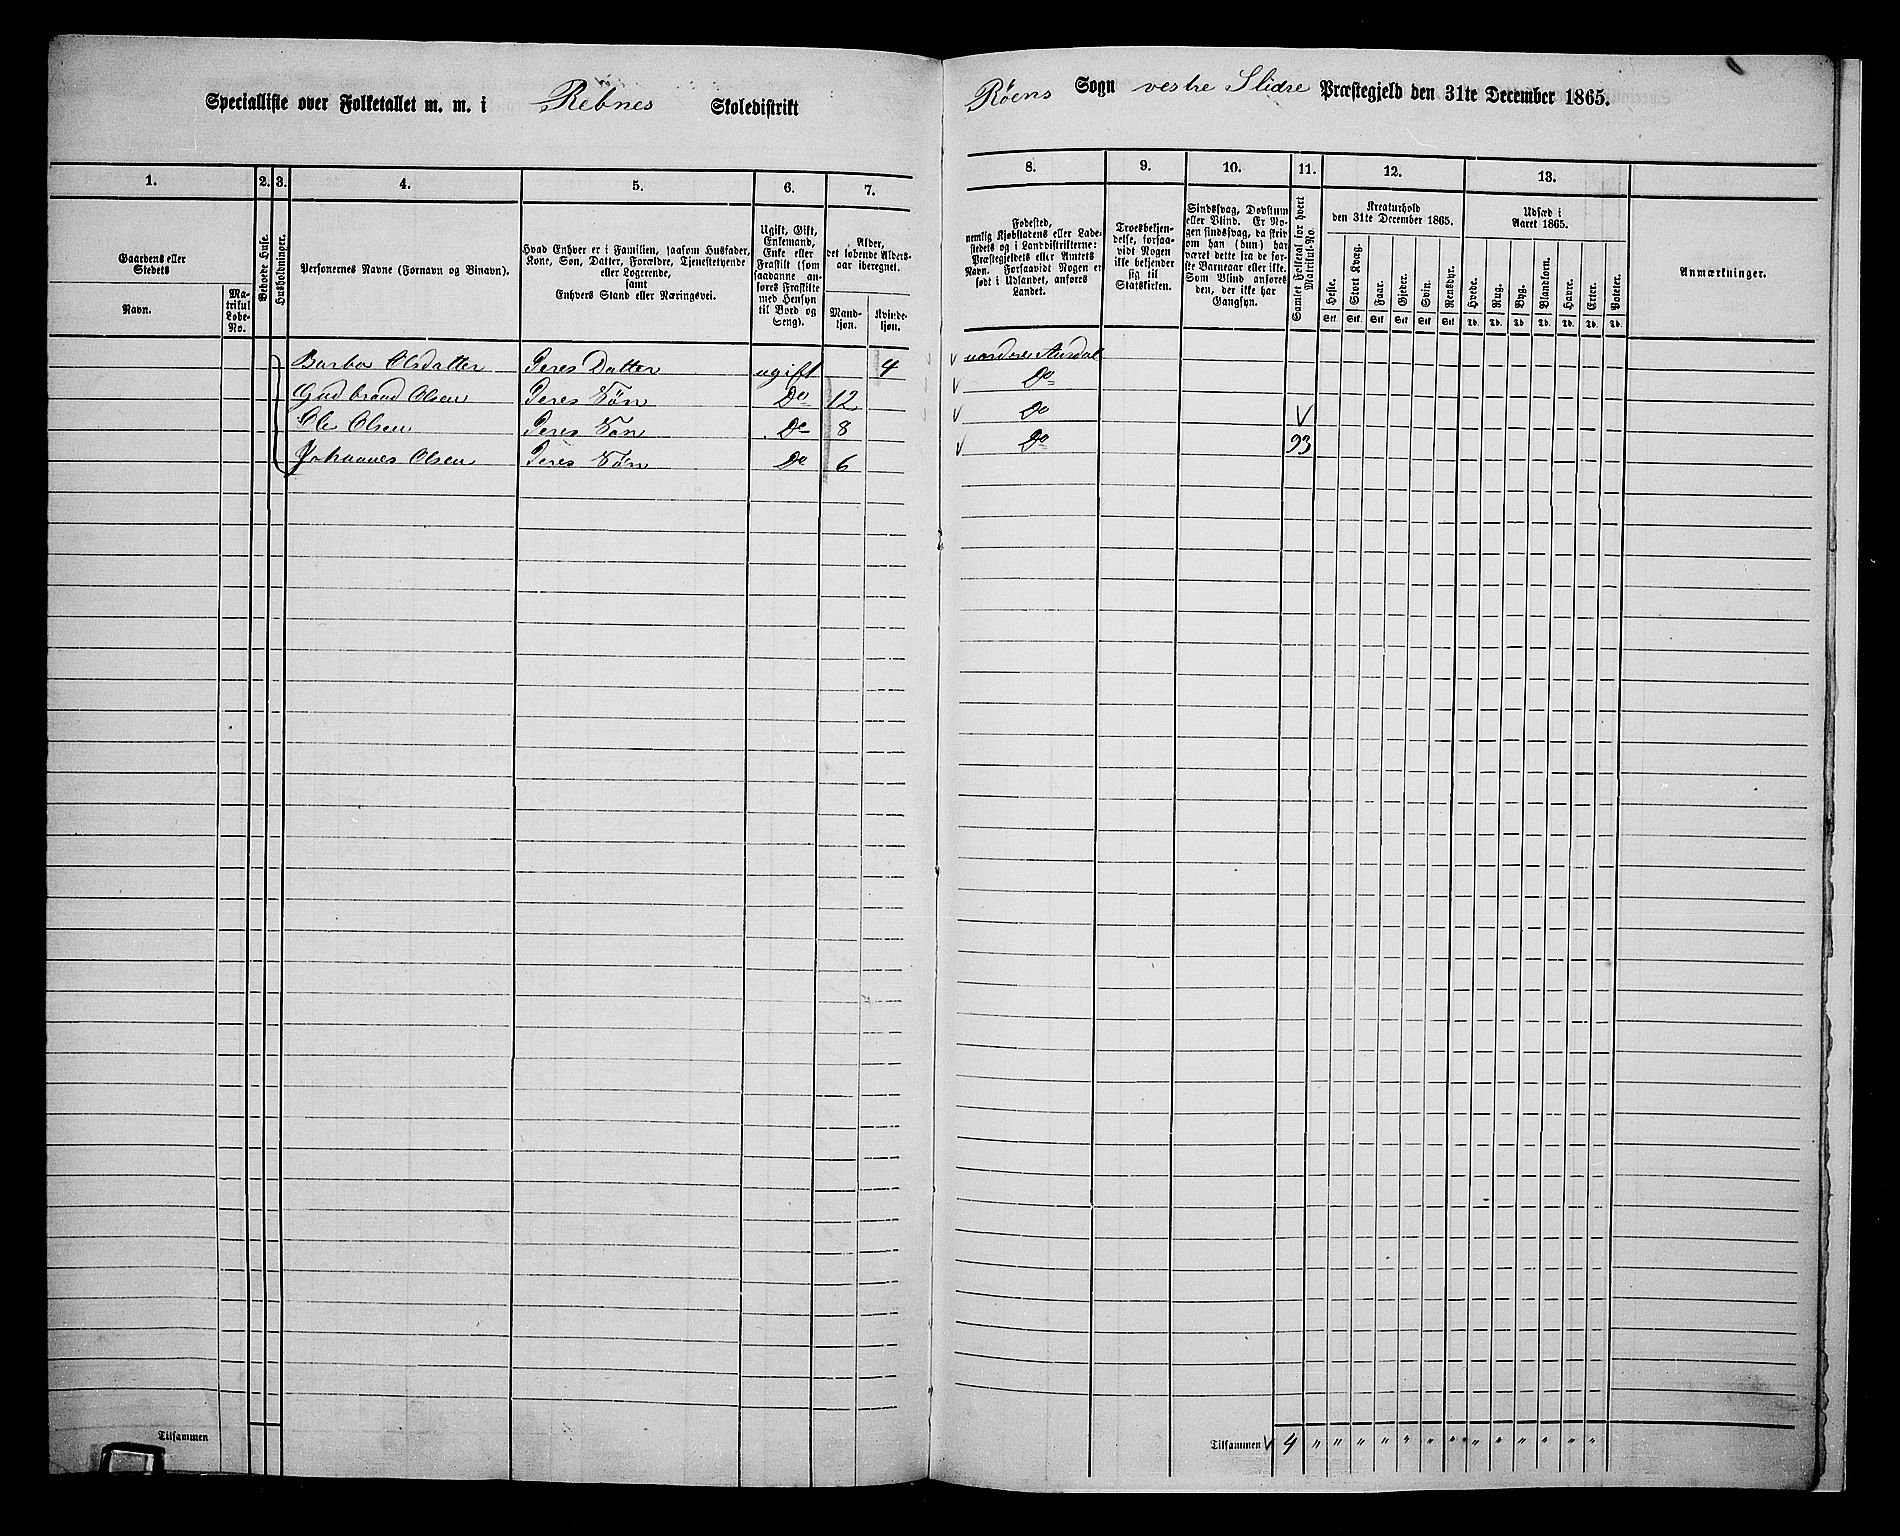 Specialliste over Folketallet m. m. i Rebnes Skoledistrikt
Røens Sogn vestre Slidre Præstegjeld den 31te December 1865.
1. 2. 3. 4. 5. 6. 7.
8. 9. 10. 11. 12. 13.
Gaardens eller
Stedets
Navn.
Ma-
trikul
Løbe-
No.
Beboede Huse.
Husholdninger.
Personernes Navne (Fornavn og Binavn).
Hvad Enhver er i Familien, saasom Husfader,
Kone, Søn, Datter, Forældre, Tjenestetyende
eller Logerende,
samt
Enhvers Stand eller Næringsvei.
Ugift, Gift,
Enkemand,
Enke eller
Fraskilt (som
saadanne an-
føres Fraskilte
med Hensyn
til Bord og
Seng).
Alder,
det løbende Alders-
aar iberegnet.
Mand-
kjøn.
Kvinde-
kjøn.
Fødested,
nemlig Kjøbstadens eller Lade-
stedets og i Landdistrikterne:
Præstegjeldets eller Amtets
Navn. Forsaavidt Nogen er
født i Udlandet, anføres
Landet.
Troesbekjen-
delse, forsaa-
vidt Nogen
ikke bekjender
sig til
Statskirken.
Sindssvag, Døvstum
eller Blind. Er No-
gen sindssvag, da skriv
om han (hun) har
været dette fra de før-
ste Barneaar eller ikke.
Som Blind anføres
den, der ikke har
Gangsyn.
Samlet Folketal for hvert
Matrikul-No.
Kreaturhold
den 31te December 1865.
Heste. Stort Kvæg. Faar. Gjeder. Svin. Rensdyr.
Stk. Stk. Stk. Stk. Stk. Stk.
Udsæd i
Aaret 1865.
Hvede. Rug. Byg. Blandkorn. Havre. Erter. Poteter.
Td. Td. Td. Td. Td. Td. Td.
Anmærkninger.
Barbo Olsdatter Deres Datter ugift 4 nordre Aurdal
Gudbrand Olsen Deres Søn Do 12 Do
Ole Olsen Deres Søn Do 8 Do
Johannes Olsen Deres Søn Do 6 Do 93
Tilsammen
Tilsammen 4 " " " " " " " " " " " "